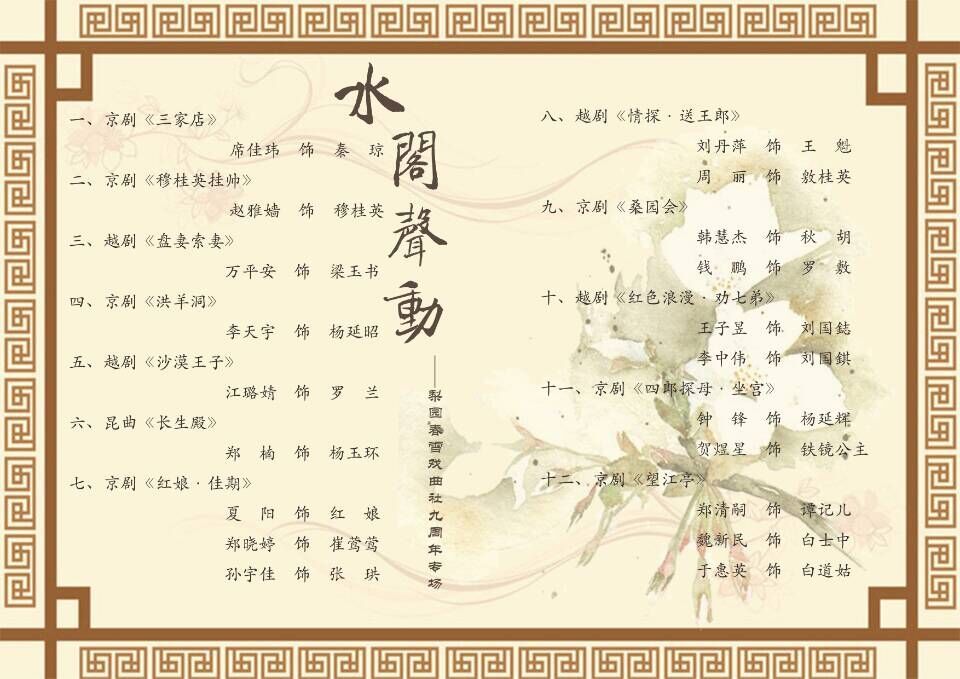 水閣聲動
——梨园春雪戏曲社九周年专场
一、京剧《三家店》
席佳玮 饰 秦 琼
二、京剧《穆桂英挂帅》
赵雅嫱 饰 穆桂英
三、越剧《盘妻索妻》
万平安 饰 梁玉书
四、京剧《洪羊洞》
李天宇 饰 杨延昭
五、越剧《沙漠王子》
江璐婧 饰 罗 兰
六、昆曲《长生殿》
郑 楠 饰 杨玉环
七、京剧《红娘·佳期》
夏 阳 饰 红 娘
郑晓婷 饰 崔莺莺
孙宇佳 饰 张 珙
八、越剧《情探·送王郎》
刘丹萍 饰 王 魁
周 丽 饰 敫桂英
九、京剧《桑园会》
韩慧杰 饰 秋 胡
钱 鹏 饰 罗 敷
十、越剧《红色浪漫·劝七弟》
王子昱 饰 刘国鋕
李中伟 饰 刘国錤
十一、京剧《四郎探母·坐宫》
钟 锋 饰 杨延辉
贺煜星 饰 铁镜公主
十二、京剧《望江亭》
郑清嗣 饰 谭记儿
魏新民 饰 白士中
于惠英 饰 白道姑